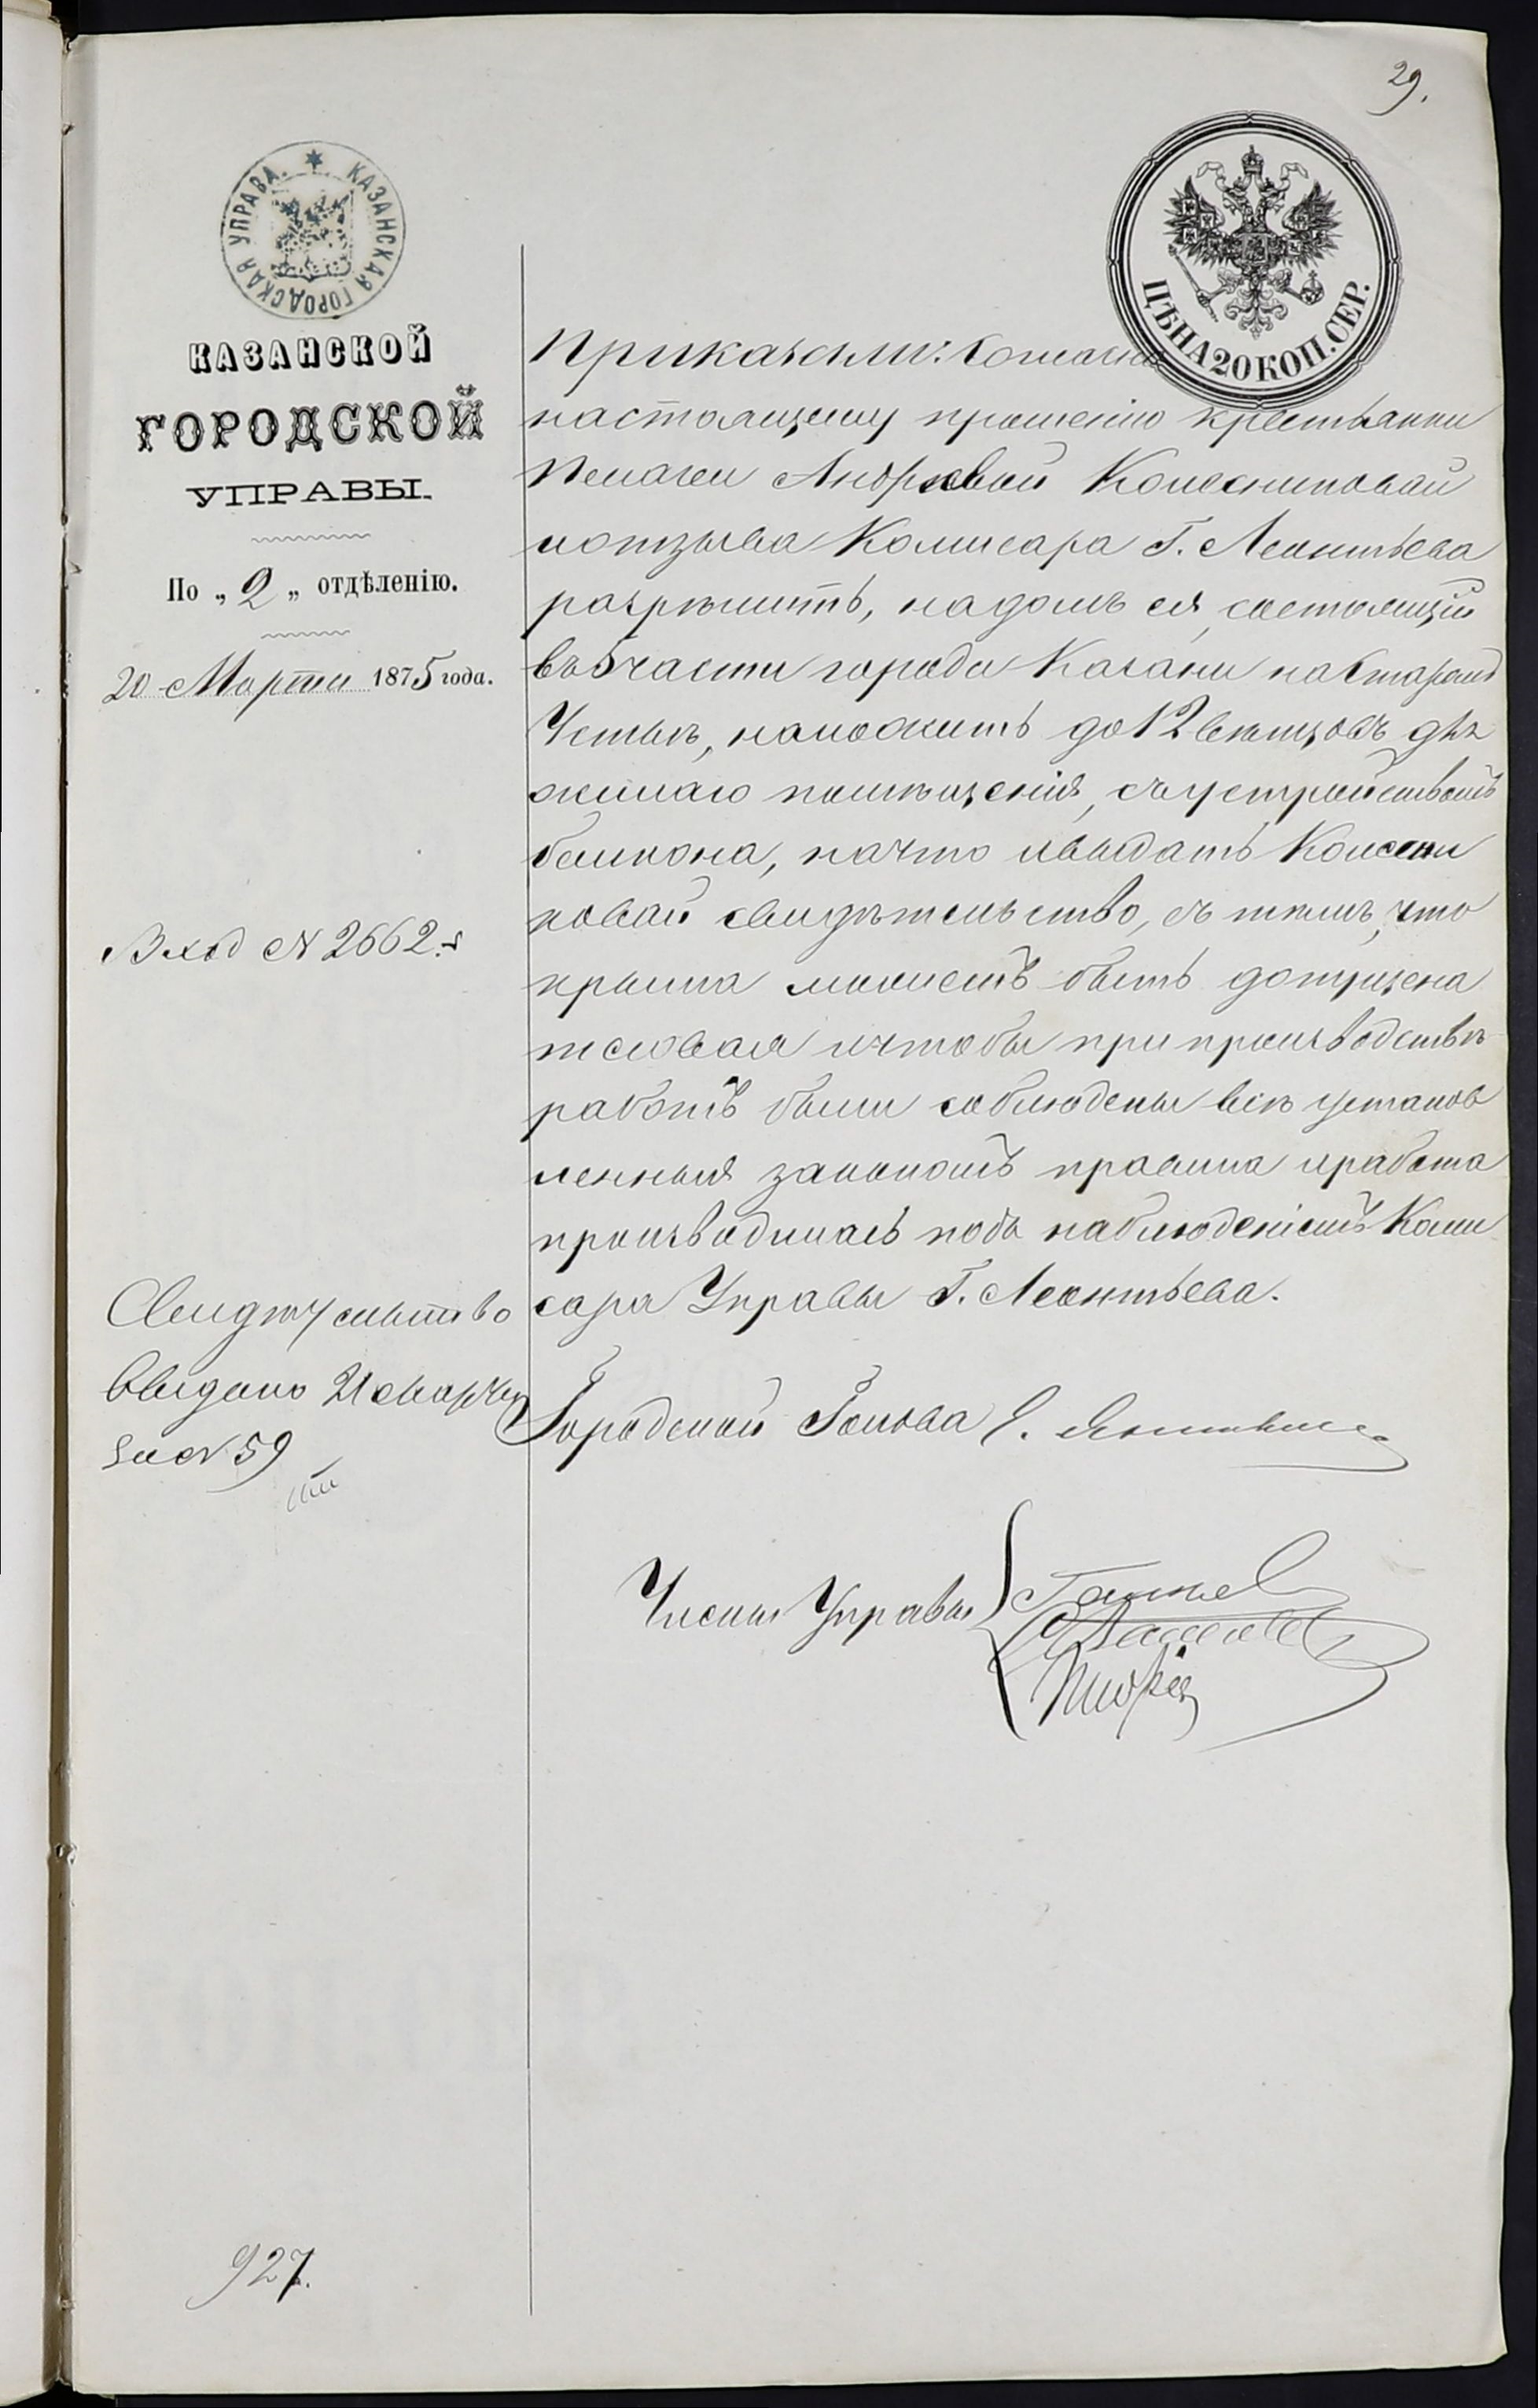 29.
КАЗАНСКАЯ ГОРОДСКАЯ УПРАВА.
ЦѢНА 20 КОП. СЕР.
КАЗАНСКОЙ
ГОРОДСКОЙ
УПРАВЫ.
По „2„ отдѣленію.
20 Марта 1875 года.
Вход № 2662.
Свидѣтельство
выдано 21 Марта
за № 59
927.
Приказали: Согласно
настоящему прошенію крестьянки
Пелагеи Андреевой Колесниковой
и отзыва Комисара Г. Леонтьева
разрѣшить, на домъ ея, состоящій
въ 5 части города Казани на Старомъ
Устьѣ, наложить до 12 вѣнцовъ для
жилаго помѣщенія, съ устройствомъ
балкона, на что и выдать Колесни
ковой свидѣтельство, съ тѣмъ, что
крыша можетъ быть допущена
тесовая и чтобы при производствѣ
работъ были соблюдены всѣ установ
ленныя закономъ правила и работа
производилась подъ наблюденіемъ Коми
сара Управы Г. Леонтьева.
Городской Голова
Члены Управы